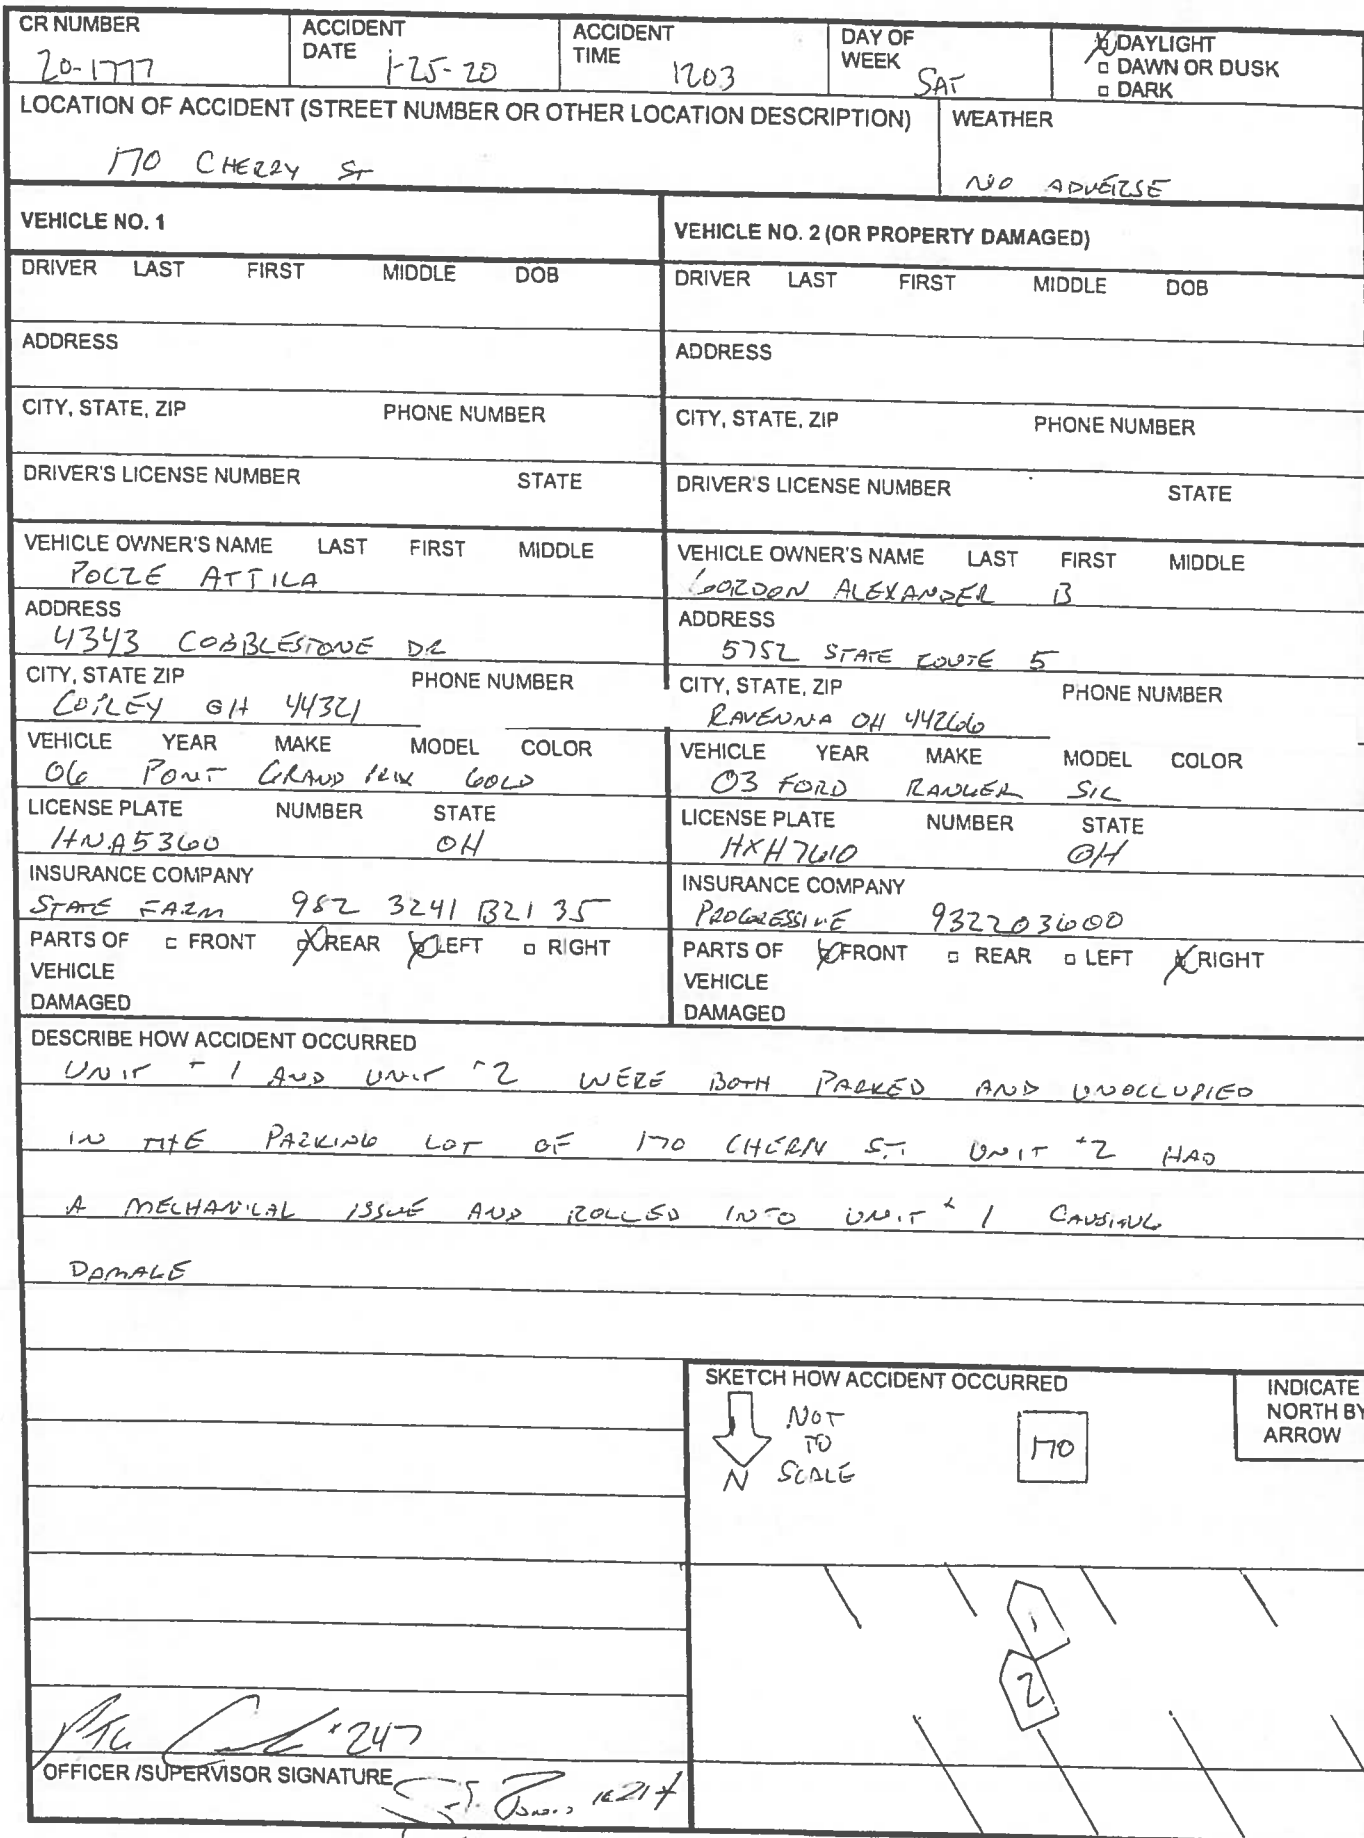 CR NUMBER
20-1777
ACCIDENT DATE 1-25-20
ACCIDENT TIME 1203
DAY OF WEEK SAT
DAYLIGHT
DAWN OR DUSK
DARK
LOCATION OF ACCIDENT (STREET NUMBER OR OTHER LOCATION DESCRIPTION)
170 CHERRY ST
WEATHER
NO ADVERSE
VEHICLE NO. 1
DRIVER LAST FIRST MIDDLE DOB
ADDRESS
CITY, STATE, ZIP PHONE NUMBER
DRIVER'S LICENSE NUMBER STATE
VEHICLE OWNER'S NAME LAST FIRST MIDDLE
POCZE ATTILA
ADDRESS
4343 COBBLESTONE DR
CITY, STATE ZIP PHONE NUMBER
COPLEY OH 44321
VEHICLE YEAR MAKE MODEL COLOR
06 PONT GRAND PRIX GOLD
LICENSE PLATE NUMBER STATE
HNA5360 OH
INSURANCE COMPANY
STATE FARM 982 3241 B21 35
PARTS OF VEHICLE DAMAGED FRONT REAR LEFT RIGHT
VEHICLE NO. 2 (OR PROPERTY DAMAGED)
DRIVER LAST FIRST MIDDLE DOB
ADDRESS
CITY, STATE, ZIP PHONE NUMBER
DRIVER'S LICENSE NUMBER STATE
VEHICLE OWNER'S NAME LAST FIRST MIDDLE
GORDON ALEXANDER B
ADDRESS
5752 STATE ROUTE 5
CITY, STATE, ZIP PHONE NUMBER
RAVENNA OH 44266
VEHICLE YEAR MAKE MODEL COLOR
03 FORD RANGER SIL
LICENSE PLATE NUMBER STATE
HXH7610 OH
INSURANCE COMPANY
PROGRESSIVE 932203600
PARTS OF VEHICLE DAMAGED FRONT REAR LEFT RIGHT
DESCRIBE HOW ACCIDENT OCCURRED
UNIT #1 AND UNIT #2 WERE BOTH PARKED AND UNOCCUPIED
IN THE PARKING LOT OF 170 CHERRY ST. UNIT #2 HAD
A MECHANICAL ISSUE AND ROLLED INTO UNIT #1 CAUSING
DAMAGE
SKETCH HOW ACCIDENT OCCURRED
INDICATE NORTH BY ARROW
NOT
TO
SCALE
N
170
1
2
#247
OFFICER /SUPERVISOR SIGNATURE